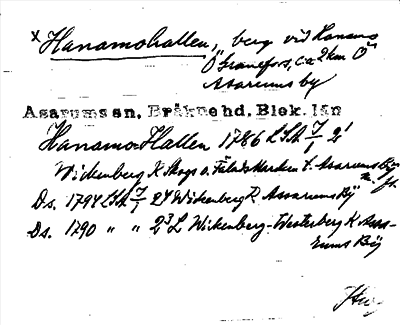 x Hanamohallen, berg vid Hanamo
Ö Granefors, ca 2 km Ö
Asarums by
Asarums sn, Bräkne hd, Blek. län
Hanamo-Hallen 1786 LSA 2
Wickenberg K Skogs o. Fäladsmarken t. Asarums By
Ds. 1794 LSA 24 Wickenberg K Assarums By
Ds. 1790 " " 23 L Wickenberg-Westerberg K Assa-
rums By